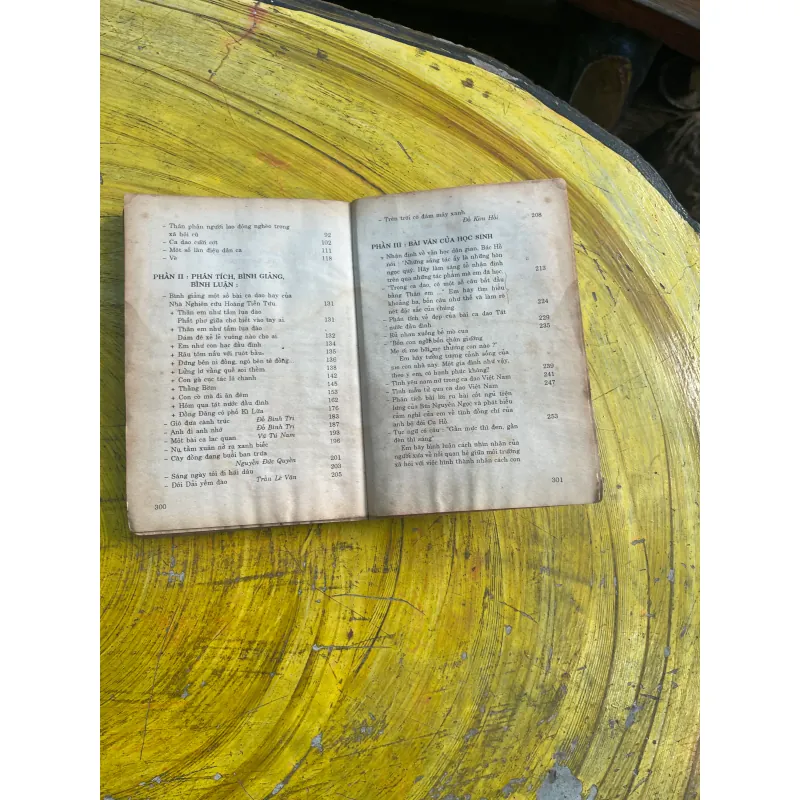 - Thân phận người lao động nghèo trong
xã hội cũ 92
- Ca dao cười cợt 102
- Một số làn điệu dân ca 111
- Vè 118
PHẦN II : PHÂN TÍCH, BÌNH GIẢNG,
BÌNH LUẬN :
- Bình giảng một số bài ca dao hay của
Nhà Nghiên cứu Hoàng Tiến Tựu. 131
+ Thân em như tấm lụa đào
Phất phơ giữa chợ biết vào tay ai. 131
+ Thân em như tấm lụa đào
Dám đâu xé lẻ vuông nào cho ai. 132
+ Em như cục cứt trôi sông
+ Râu tôm nấu với ruột bầu. 135
+ Đứng bên ni đồng, ngó bên tê đồng. 136
+ Lửng lơ vầng quế soi thềm. 138
+ Con gà cục tác lá chanh 142
+ Thằng Bờm 145
+ Con cò mà đi ăn đêm 153
+ Hôm qua tát nước đầu đình 162
+ Đồng Đăng có phố Kì Lừa 176
- Gió đưa cành trúc Đỗ Bình Trị 183
- Anh đi anh nhớ Đỗ Bình Trị 187
- Một bài ca lạc quan Vũ Tú Nam 193
- Nụ tầm xuân nở ra xanh biếc 196
- Cày đồng đang buổi ban trưa
Nguyễn Đức Quyền 201
- Sáng ngày tôi đi hái dâu 203
- Đôi Dải yếm đào Trần Lê Văn 205
300
- Trên trời có đám mây xanh 208
Đỗ Kim Hồi
PHẦN III : BÀI VĂN CỦA HỌC SINH
+ Nhận định về văn học dân gian, Bác Hồ
nói : "Những sáng tác ấy là những hòn
ngọc quý. Hãy làm sáng tỏ nhận định
trên qua những tác phẩm mà em đã học. 213
"Trong ca dao, có một số câu bắt đầu
bằng Thân em ..." Em hãy tìm hiểu
khoảng ba, bốn câu như thế và làm rõ
nét đặc sắc của chúng. 224
- Phân tích vẻ đẹp của bài ca dao Tát
nước đầu đình 229
- Rủ nhau xuống bể mò cua 235
- "Bốn con ngồi bốn chân giường
Mẹ ơi, mẹ hỡi mẹ thương con nào ?"
Em hãy tưởng tượng cảnh sống của
mẹ con nhà này. Một gia đình như vậy,
theo ý em, có hạnh phúc không? 239
- Tình yêu nam nữ trong ca dao Việt Nam 241
- Tình mẫu tử qua ca dao Việt Nam 247
- Phân tích bài lời ru hai cốt ngũ trên
lưng của Bùi Nguyễn Ngọc và phát biểu
cảm nghĩ của em về tình đồng chí của
anh bộ đội Cụ Hồ. 253
- Tục ngữ có câu : "Gần mực thì đen, gần
đèn thì sáng"
Em hãy bình luận cách nhìn nhận của
người xưa về mối quan hệ giữa môi trường
xã hội với việc hình thành nhân cách con
301